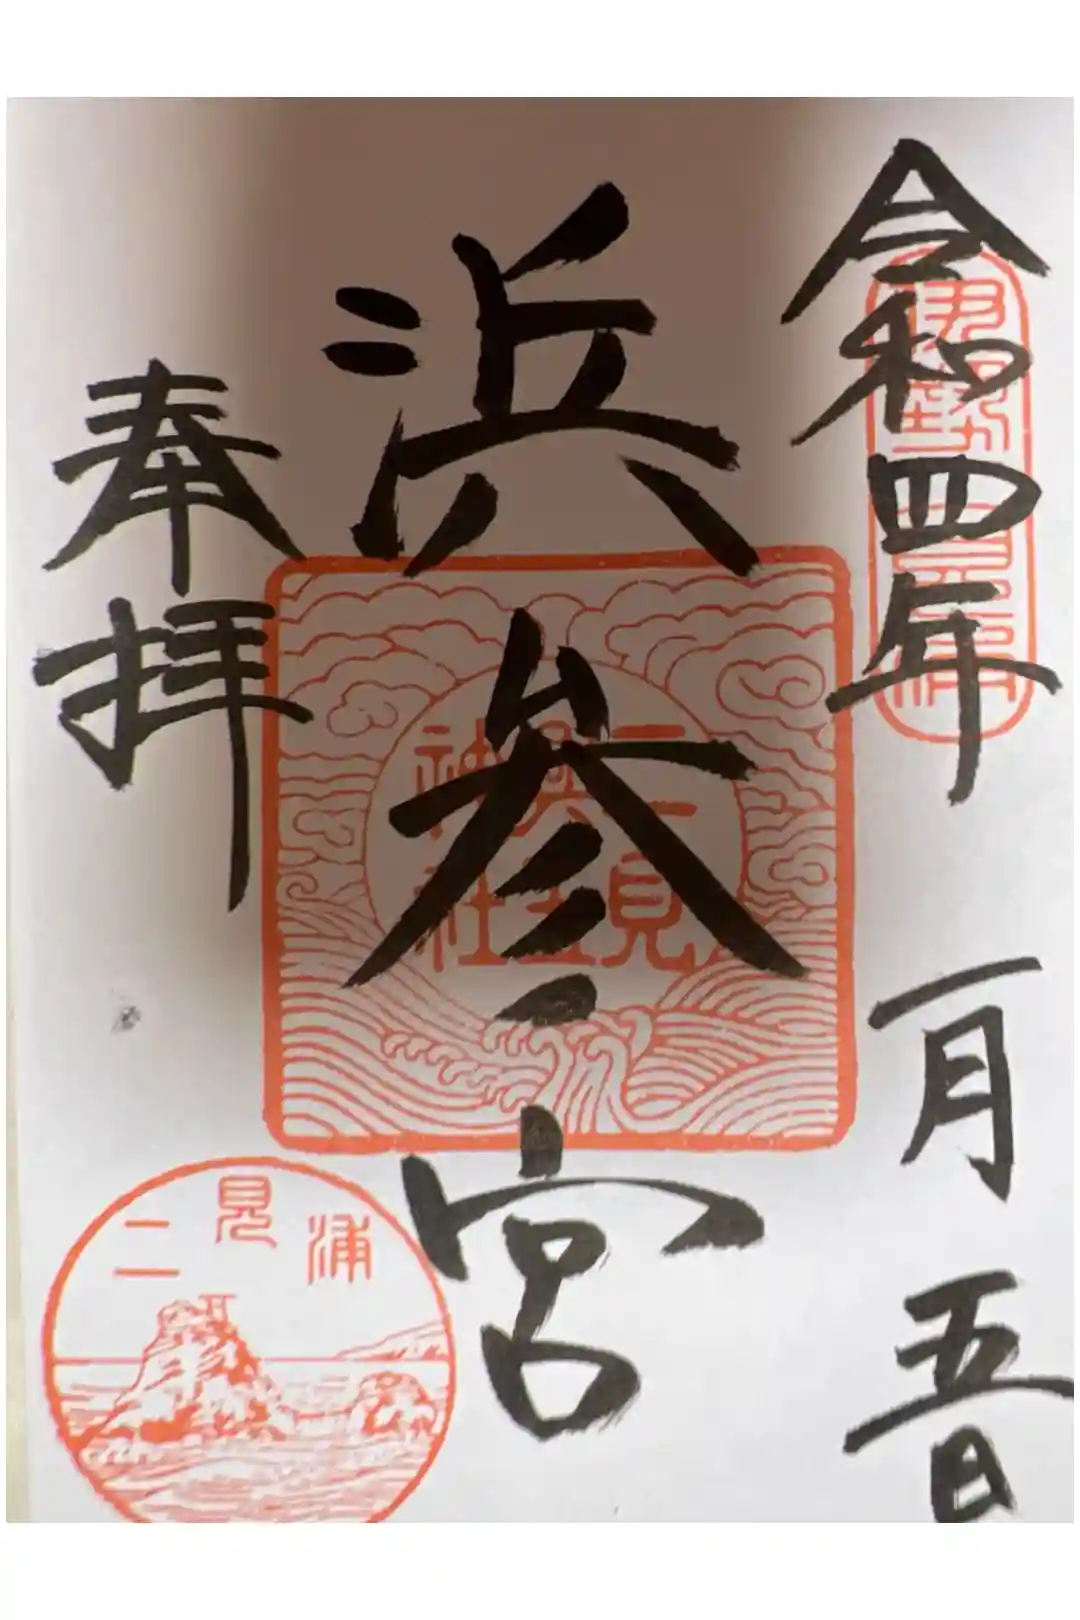 令和四年 一月 五日
伊勢二見浦
浜参宮
二見
興玉
神社
奉拝
二見浦